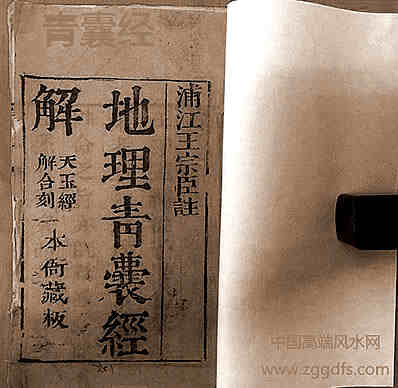 青囊经
浦江王宗臣註
地理青囊經
解
天玉經
解合刻
本衙藏板
中国高端风水网
www.zggdfs.com